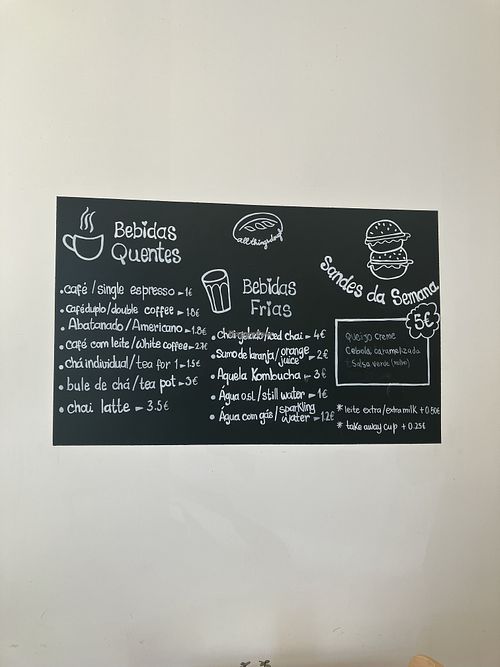 Bebidas
Quentes
• café / single espresso - 1€
• café duplo/double coffee - 1.8€
• Abatanado / Americano - 1.8€
• Café com leite/white coffee - 2.2€
• chá individual / tea for 1 - 1.5€
• bule de chá / tea pot - 3€
• chai latte - 3.5€
all things dough
Bebidas
Frias
• chai gelado/iced chai - 4€
• Sumo de laranja/orange juice - 2€
• Aquela Kombucha - 3€
• Água 0.5L / still water - 1€
• Água com gás/sparkling water - 1.2€
Sandes da Semana
5€
Queijo creme
Cebola caramelizada
Salsa verde (molho)
* leite extra/extra milk + 0.50€
* take away cup + 0.25€